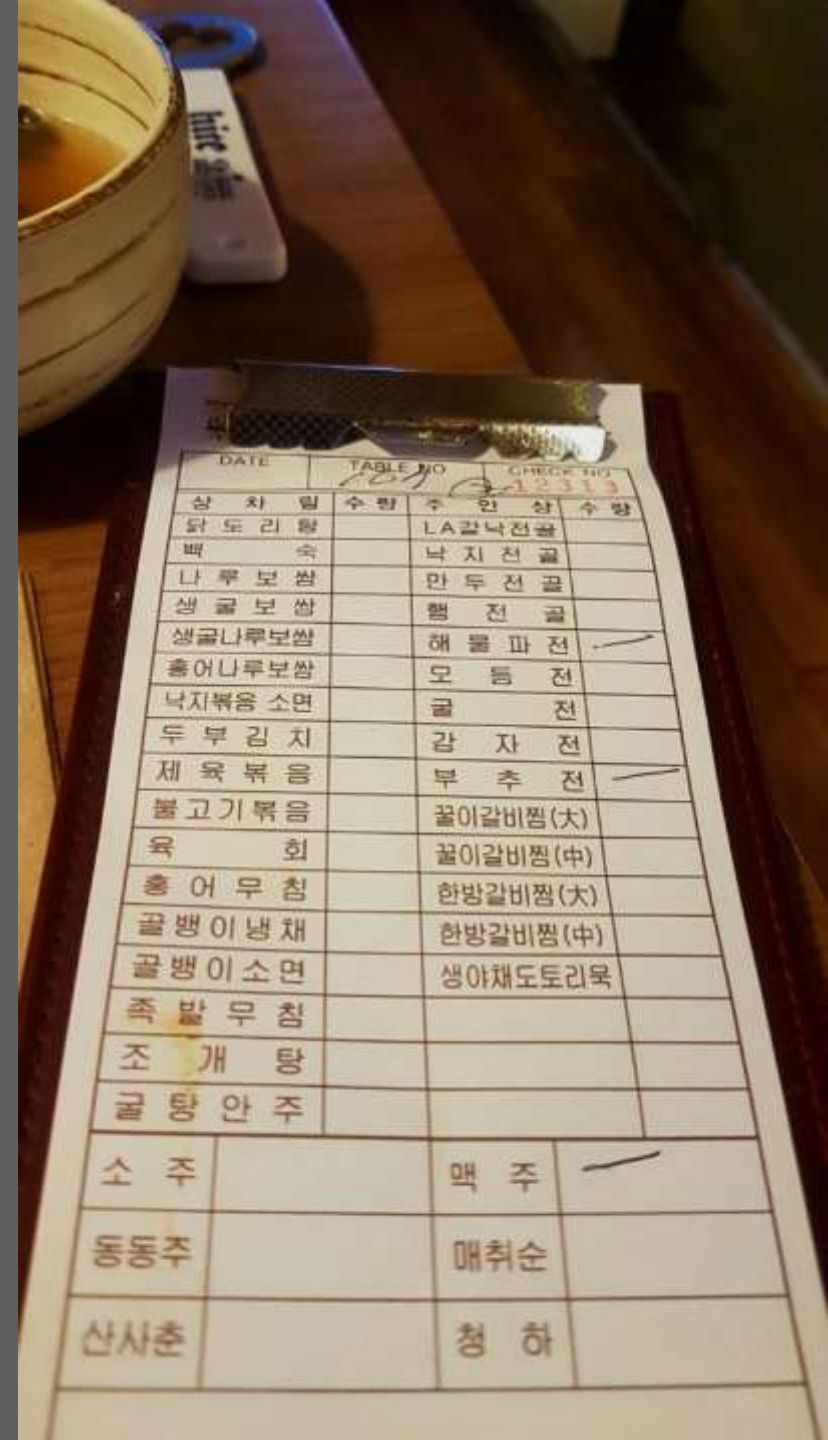 DATE TABLE NO CHECK NO
12313
상차림 수량 주안상 수량
닭도리탕 LA갈낙전골
백숙 낙지전골
나루보쌈 만두전골
생굴보쌈 햄전골
생굴나루보쌈 해물파전
홍어나루보쌈 모듬전
낙지볶음 소면 굴전
두부김치 감자전
제육볶음 부추전
불고기볶음 꿀이갈비찜(大)
육회 꿀이갈비찜(中)
홍어무침 한방갈비찜(大)
골뱅이냉채 한방갈비찜(中)
골뱅이소면 생야채도토리묵
족발무침
조개탕
굴탕안주
소주 맥주
동동주 매취순
산사춘 청하